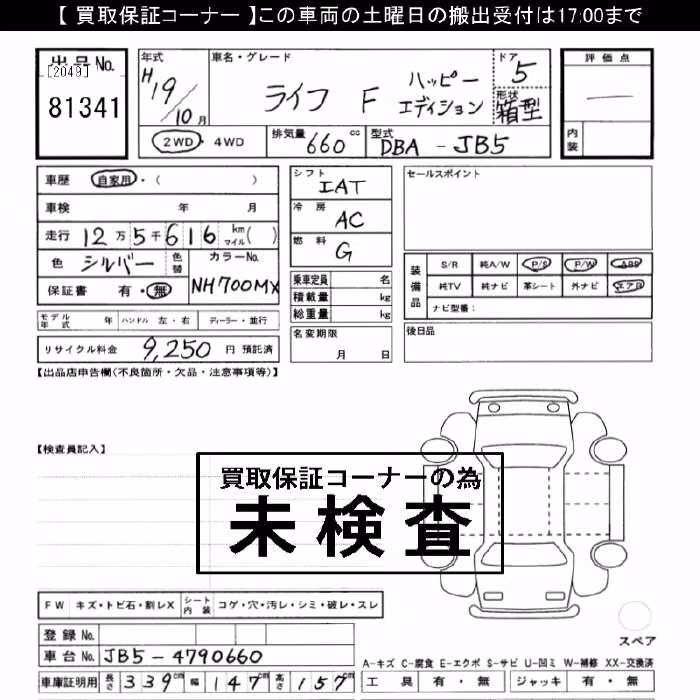 【 買取保証コーナー 】この車両の土曜日の搬出受付は17:00まで
出品No.
[2049]
81341
年式
H19/10月
車名・グレード
ライフ F ハッピーエディション
ドア
5
形状
箱型
評価点
—
内装
2WD・4WD
排気量 660 cc
型式 DBA - JB5
車歴 自家用・( )
車検 年 月
走行 12万5千616 km マイル( )
色 シルバー 色替
カラーNo.
NH700MX
保証書 有・無
モデル年式 年 ハンドル 左・右 ディーラー・並行
リサイクル料金 9,250 円 預託済
シフト
IAT
冷房
AC
燃料
G
乗車定員 名
積載量 kg
総重量 kg
名変期限
月 日
セールスポイント
装備品
S/R 純A/W P/S P/W ABS
純TV 純ナビ 革シート 外ナビ エアB
ナビ型番:
後日品
【出品店申告欄(不良箇所・欠品・注意事項等)】
【検査員記入】
買取保証コーナーの為
未検査
FW キズ・トビ石・割レX シート内装 コゲ・穴・汚レ・シミ・破レ・スレ
登録No.
車台No. JB5-4790660
車庫証明用 長さ 339cm 幅 147cm 高さ 157cm
スペア
A-キズ C-腐食 E-エクボ S-サビ U-凹ミ W-補修 XX-交換済
工具 有・無 ジャッキ 有・無